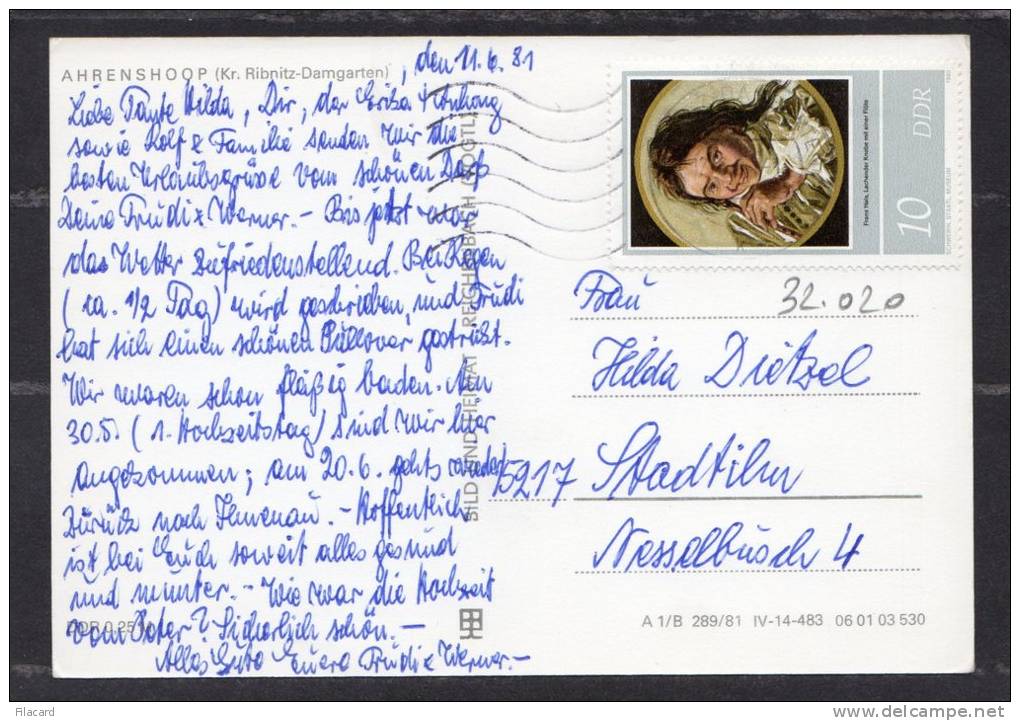 AHRENSHOOP (Kr. Ribnitz-Damgarten)
, den 11.6.81
Liebe Tante Hilda, Dir, der Erika + Anhang
sowie Rolf & Familie senden wir die
besten Urlaubsgrüße vom schönen Darß
Deine Trudi & Werner. – Bis jetzt war
das Wetter zufriedenstellend. Bei Regen
(ca. 1/2 Tag) wird geschrieben, und Trudi
hat sich einen schönen Pullover gestrickt.
Wir waren schon fleißig baden. Am
30.5. (1. Hochzeitstag) sind wir hier
angekommen; am 20.6. gehts wieder
zurück nach Ilmenau. – Hoffentlich
ist bei Euch soweit alles gesund
und munter. – Wie war die Hochzeit
vom Peter? Sicherlich schön. –
Alles Gute Euere Trudi & Werner. –
BILD UND HEIMAT REICHENBACH (VOGTL)
Frans Hals, Lachender Knabe mit einer Flöte
10 DDR
SCHWERIN, STAATL. MUSEUM
1980
Frau
32.020
Hilda Dietzel
5217 Stadtilm
Nesselbusch 4
A 1/B 289/81 IV-14-483 06 01 03 530
Filacard
www.delcampe.net